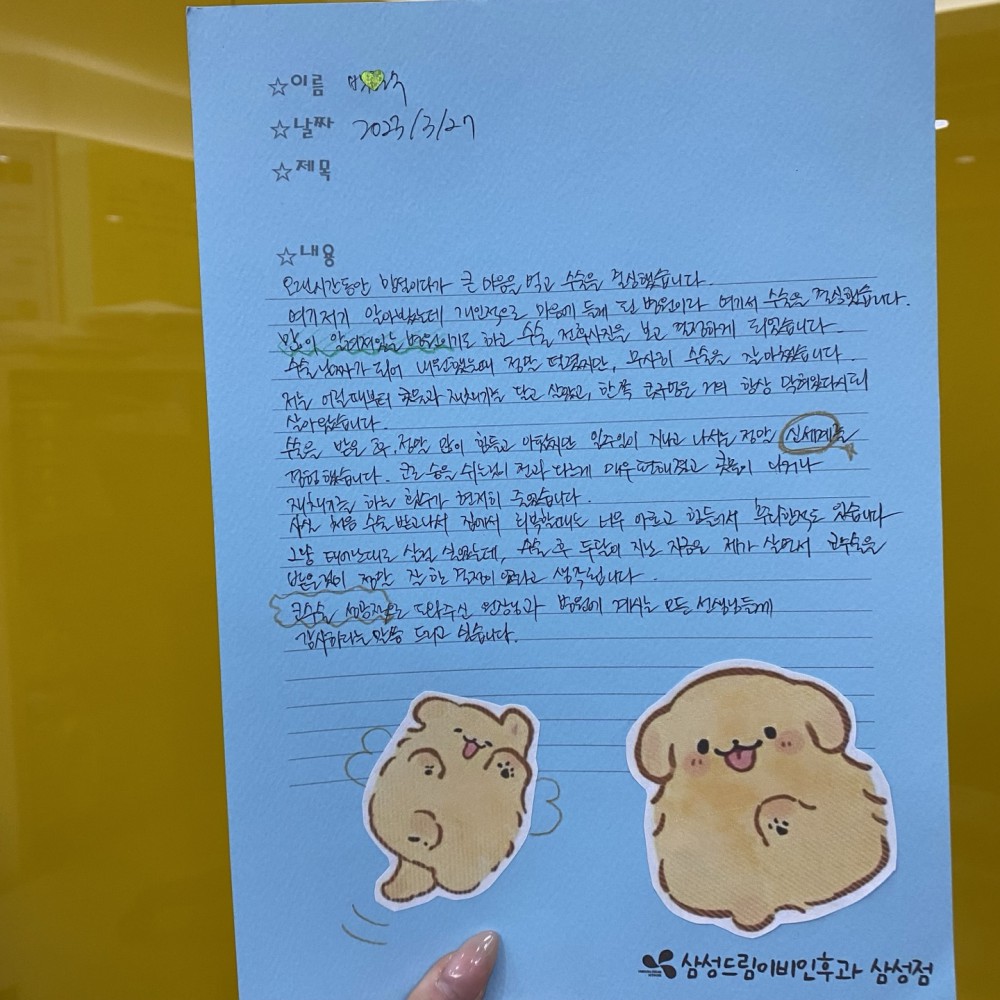 ☆이름
☆날짜 2023/3/27
☆제목
☆내용
오랜시간동안 망설이다가 큰 마음을 먹고 수술을 결심했습니다.
여기저기 알아봤는데 개인적으로 마음에 들게 된 병원이라 여기서 수술을 결심했습니다.
많이 알려져있는 병원이기도 하고 수술 전후사진을 보고 결정하게 되었습니다.
수술날짜가 되어 내원했을때 정말 떨렸지만, 무사히 수술을 잘 마쳤습니다.
저는 어릴때부터 콧물과 재채기를 달고 살았고, 한쪽 콧구멍은 거의 항상 막혀있다시피
살아왔습니다.
수술을 받은 후, 정말 많이 힘들고 아팠지만 일주일이 지나고 나서는 정말 신세계를
경험했습니다. 코로 숨을 쉬는것이 전과 다르게 매우 편해졌고 콧물이 나거나
재채기를 하는 횟수가 현저히 줄었습니다.
사실 처음 수술 받고나서 집에서 회복할때는 너무 아프고 힘들어서 후회한적도 있습니다
그냥 태어난대로 살걸 싶었는데, 수술 후 두달이 지난 지금은 제가 살면서 코수술을
받은것이 정말 잘 한 결정이었다고 생각됩니다.
코수술 도와주신 원장님과 병원에 계시는 모든 선생님들께
감사하다는 말씀 드리고 싶습니다.
삼성드림이비인후과 삼성점